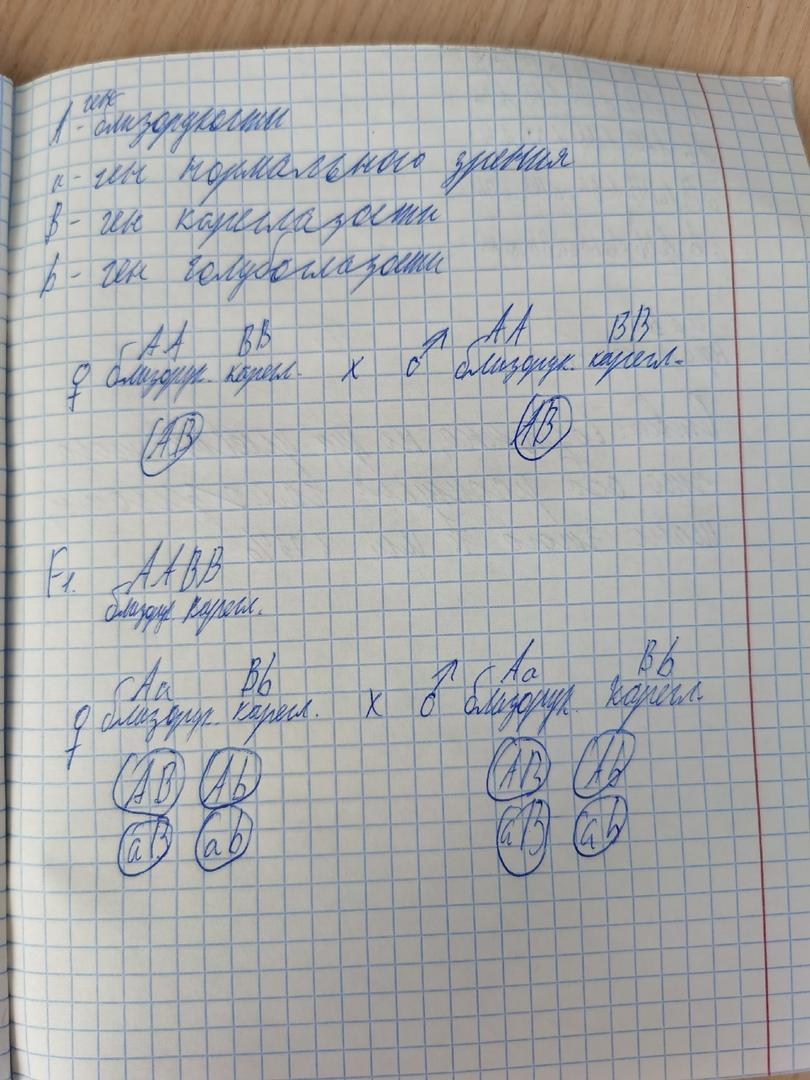 ген
A - близорукости
a - ген нормального зрения
B - ген кареглазости
b - ген голубоглазости
AA BB AA BB
♀ близорук. карегл. x ♂ близорук. карегл.
AB AB
F1. AABB
близор. карегл.
Aa Bb Aa Bb
♀ близорук. карегл. x ♂ близорук. карегл.
AB Ab AB Ab
aB ab aB ab